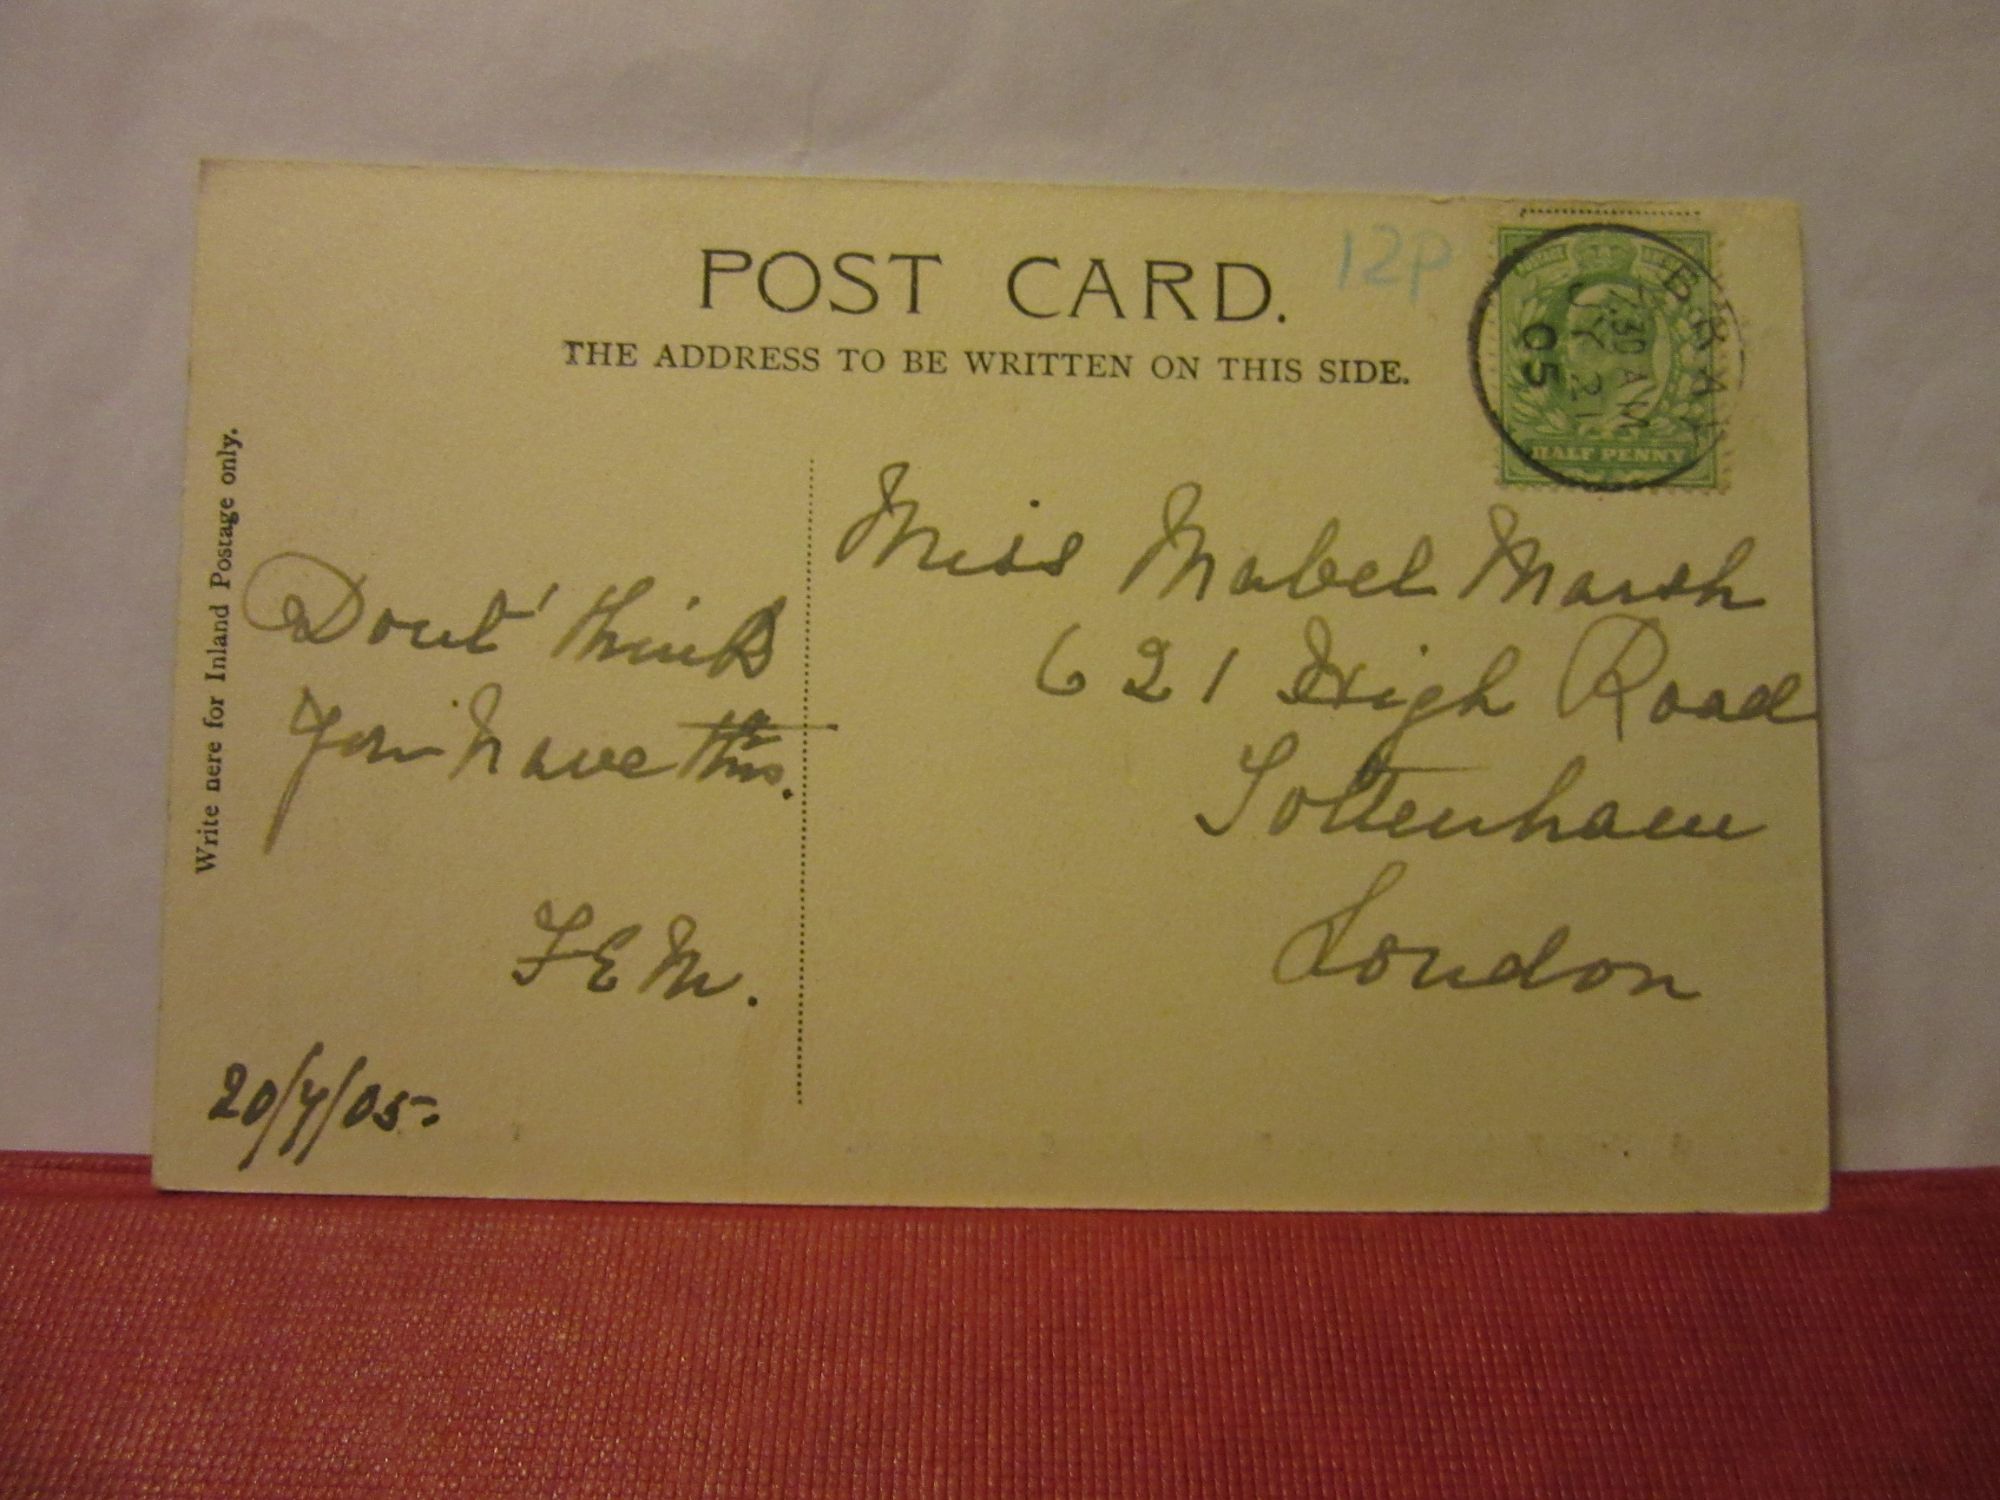 POST CARD.
12P
THE ADDRESS TO BE WRITTEN ON THIS SIDE.
BRAY
7.30 AM
JY 21
05
HALF PENNY
Write here for Inland Postage only.
Dont' think
you have this.
F E M.
20/7/05.
Miss Mabel Marsh
621 High Road
Tottenham
London